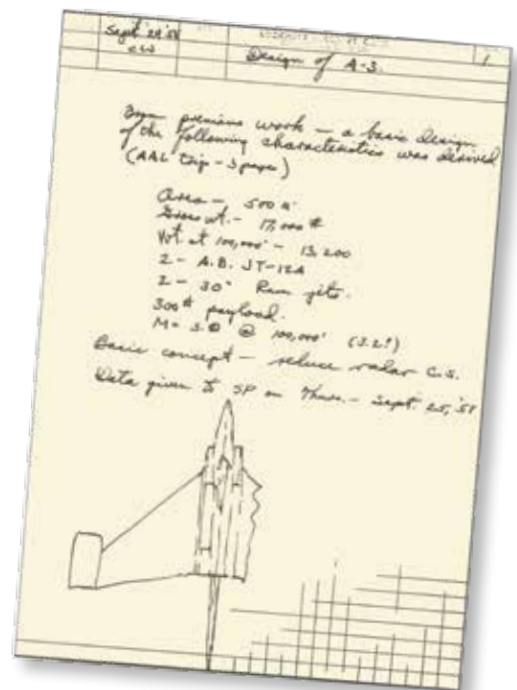 Sept 24 '58
Design of A-3.
1
From previous work — a basic design
of the following characteristics was derived
(AAL trip - 3 pages)
Area — 500 ▫'
Gross wt. — 17,000 #
Wt. at 100,000' — 13,200
2 - A.B. JT-12A
2 - 30" Ram jets.
300# payload.
M = 3.0 @ 100,000' (3.2!)
Basic concept — reduce radar C.S.
Data given to SP on Thurs. — Sept. 25, '58